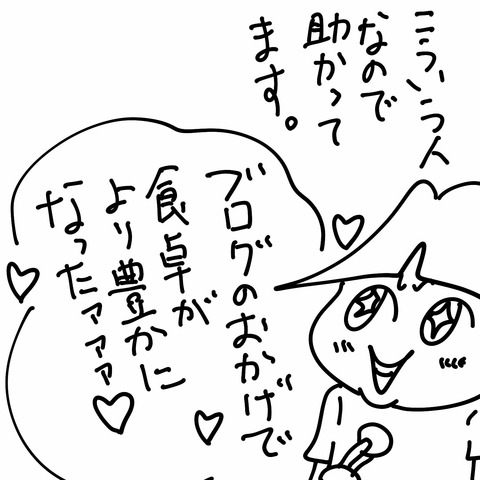 こういう人
なので
助かって
ます。
ブログのおかげで
食卓が
より豊かに
なったァァァ